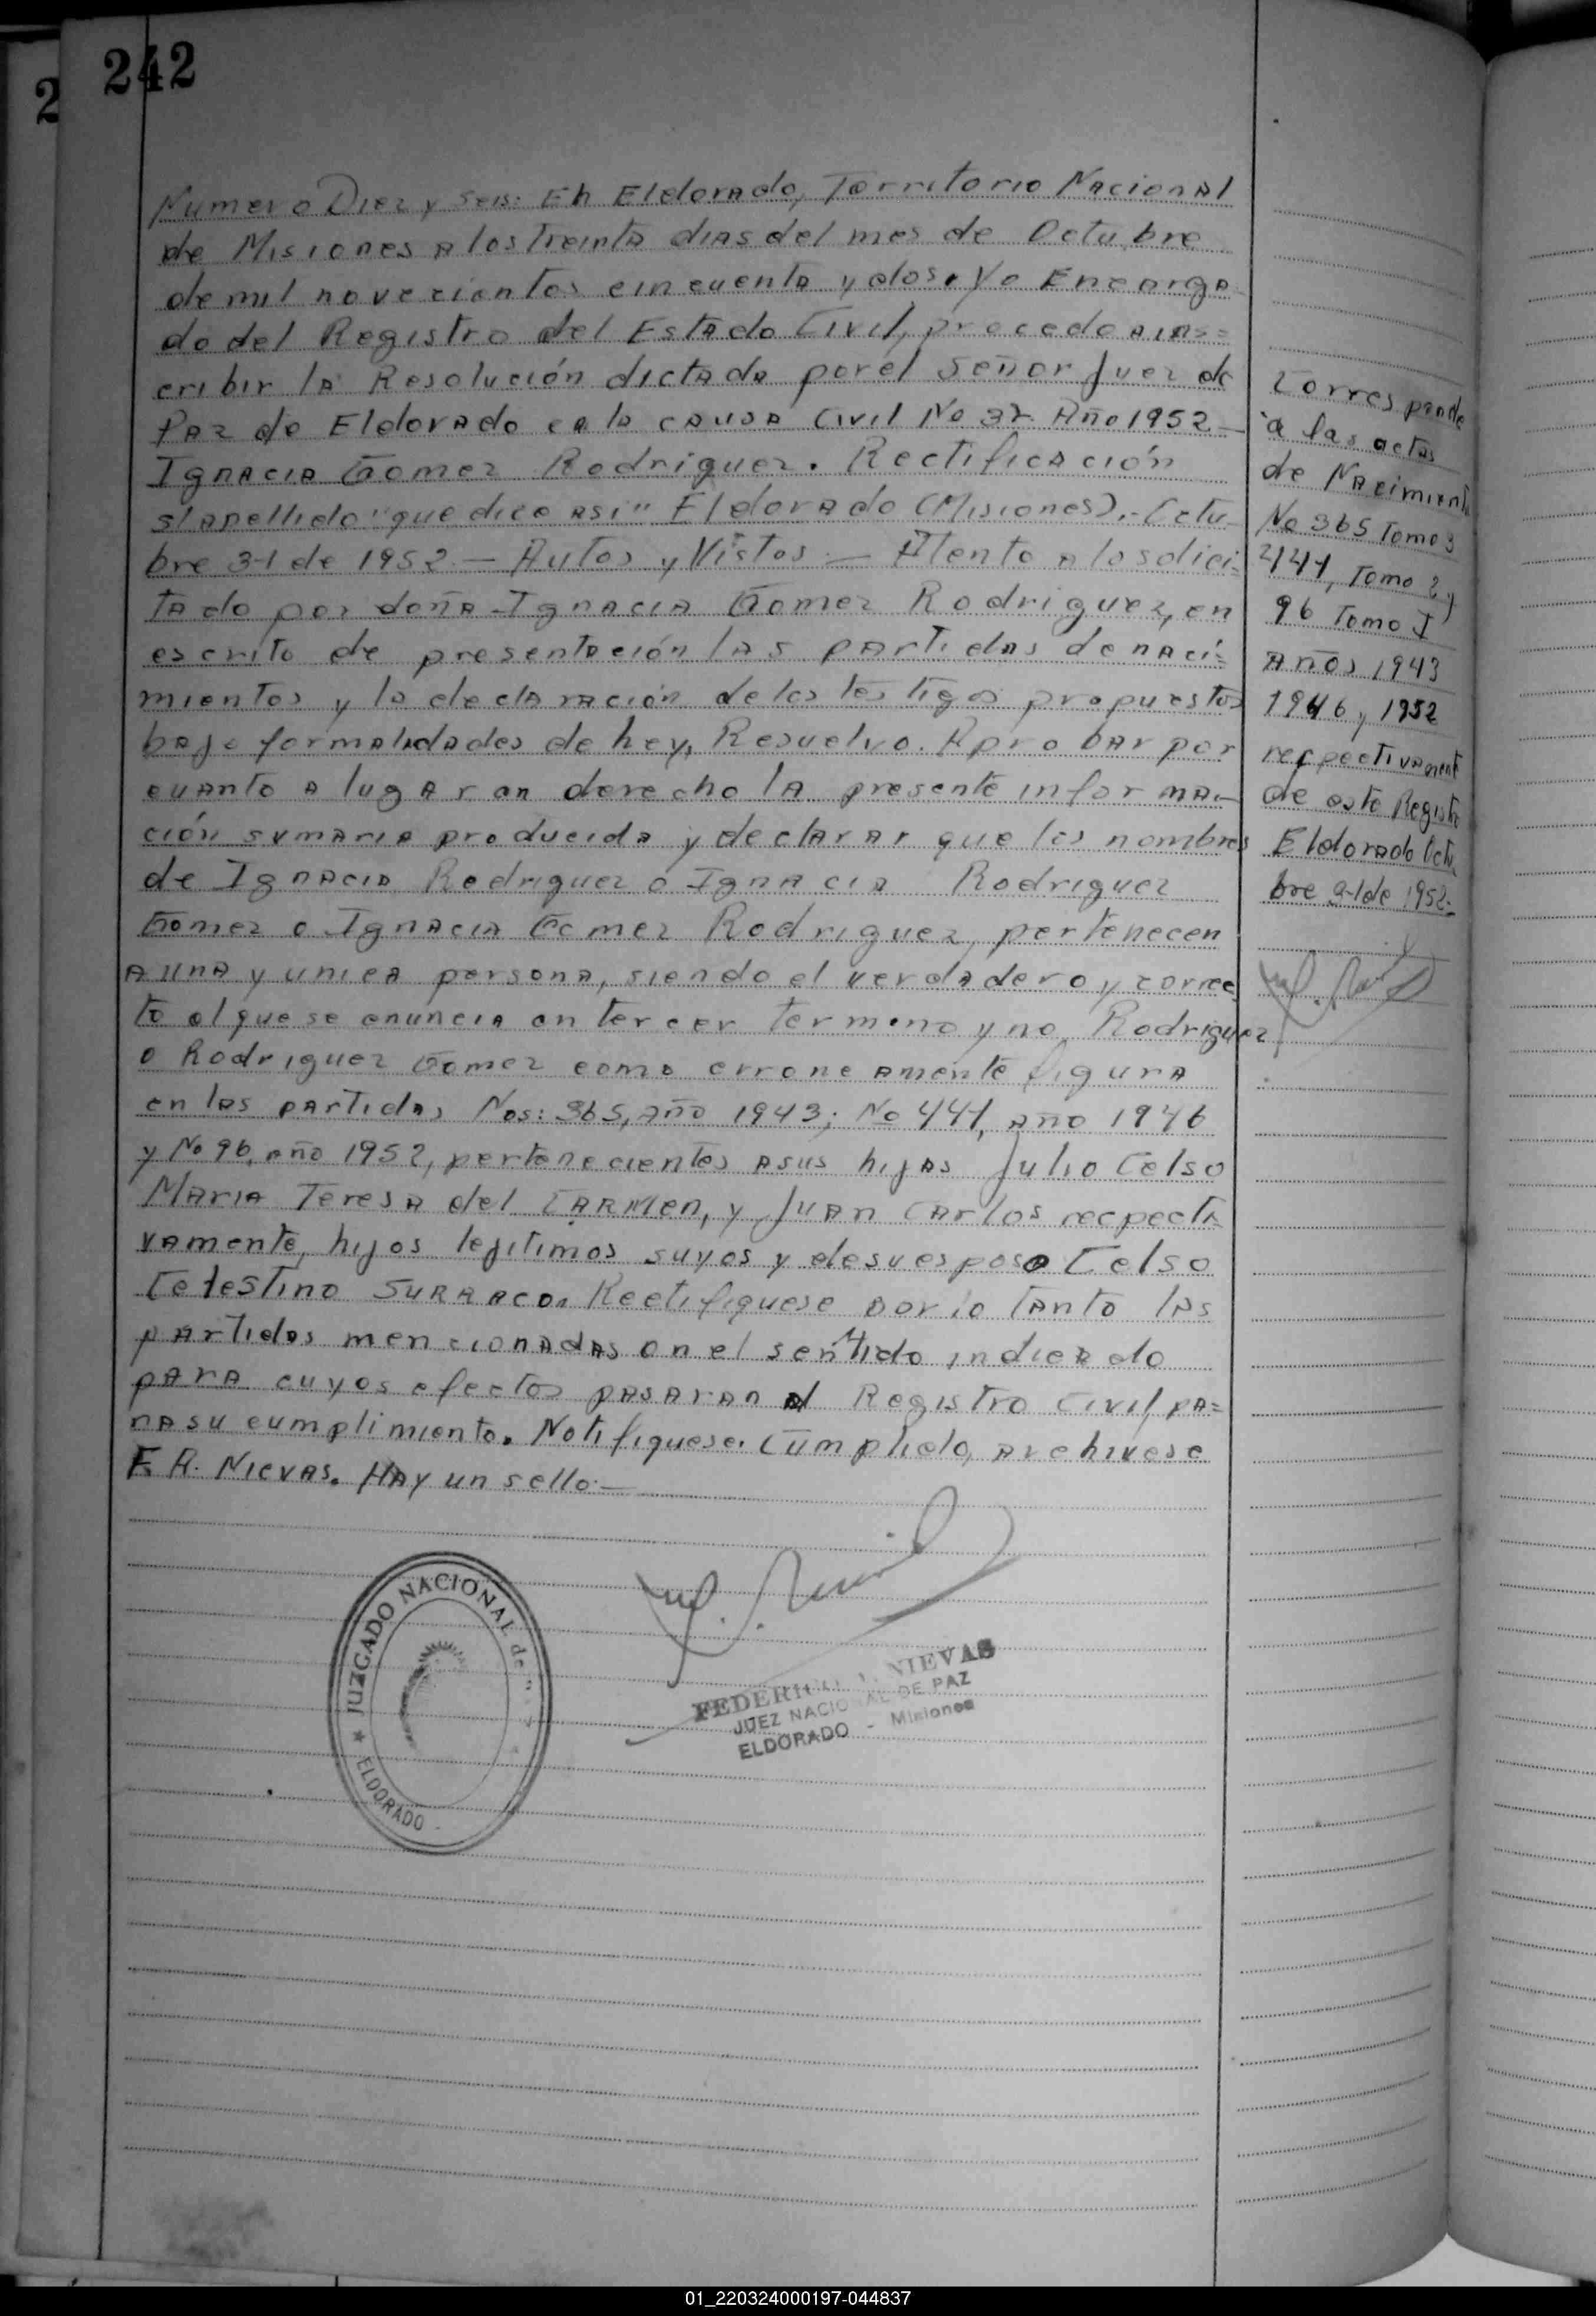 2
242
Numero Diez y seis: En Eldorado, Territorio Nacional
de Misiones a los treinta dias del mes de Octubre
de mil novecientos cincuenta y dos. Yo Encarga
do del Registro del Estado Civil, procedo a ins=
cribir la Resolución dictada por el Señor Juez de
Paz de Eldorado en la causa Civil No 32 Año 1952-
Ignacia Gomez Rodriguez. Rectificación
s/apellido "que dice asi" Eldorado (Misiones).- Octu-
bre 31 de 1952.- Autos y Vistos.- Atento a lo solici=
tado por doña Ignacia Gomez Rodriguez, en
escrito de presentación las partidas de naci=
mientos y la declaración de los testigos propuestos
bajo formalidades de ley, Resuelvo. Aprobar por
cuanto a lugar en derecho la presente informa-
ción sumaria producida y declarar que los nombres
de Ignacia Rodriguez o Ignacia Rodriguez
Gomez o Ignacia Gomez Rodriguez, pertenecen
a una y unica persona, siendo el verdadero y correc
to el que se enuncia en tercer termino y no Rodriguez
o Rodriguez Gomez como erroneamente figura
en las partidas Nos: 365, año 1943; No 441, año 1946
y No 96, año 1952, pertenecientes a sus hijas Julio Celso
Maria Teresa del Carmen, y Juan Carlos recpecti
vamente, hijos lejitimos suyos y de su esposo Celso
Celestino Suraaco. Rectifiquese por lo tanto las
partidas mencionadas en el sentido indicado
para cuyos efectos pasaran al Registro Civil, pa=
ra su cumplimiento. Notifiquese. Cumplido, archivese
F. A. Nievas. Hay un sello.-
Corresponde
a las actas
de Nacimiento
No 365 Tomo 3
441, Tomo 2 y
96 Tomo I
Años 1943
1946 y 1952
recpectivament
de este Registro
Eldorado Octu
bre 31 de 1952.-
JUZGADO NACIONAL de
★ ELDORADO -
NIEVAS
JUEZ NACIONAL DE PAZ
ELDORADO - Misiones
01_220324000197-044837